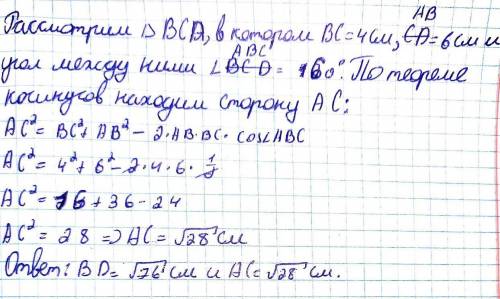 Рассмотрим △ BCD, в котором BC=4см, AB CD=6см и
угол между ними ∠ ABC BCD = 160°. По теореме
косинусов находим сторону AC:
AC² = BC² + AB² - 2·AB·BC·cos∠ABC
AC² = 4² + 6² - 2·4·6·1/2
AC² = 16 + 36 - 24
AC² = 28 => AC = √28 см
Ответ: BD = √76 см и AC = √28 см.